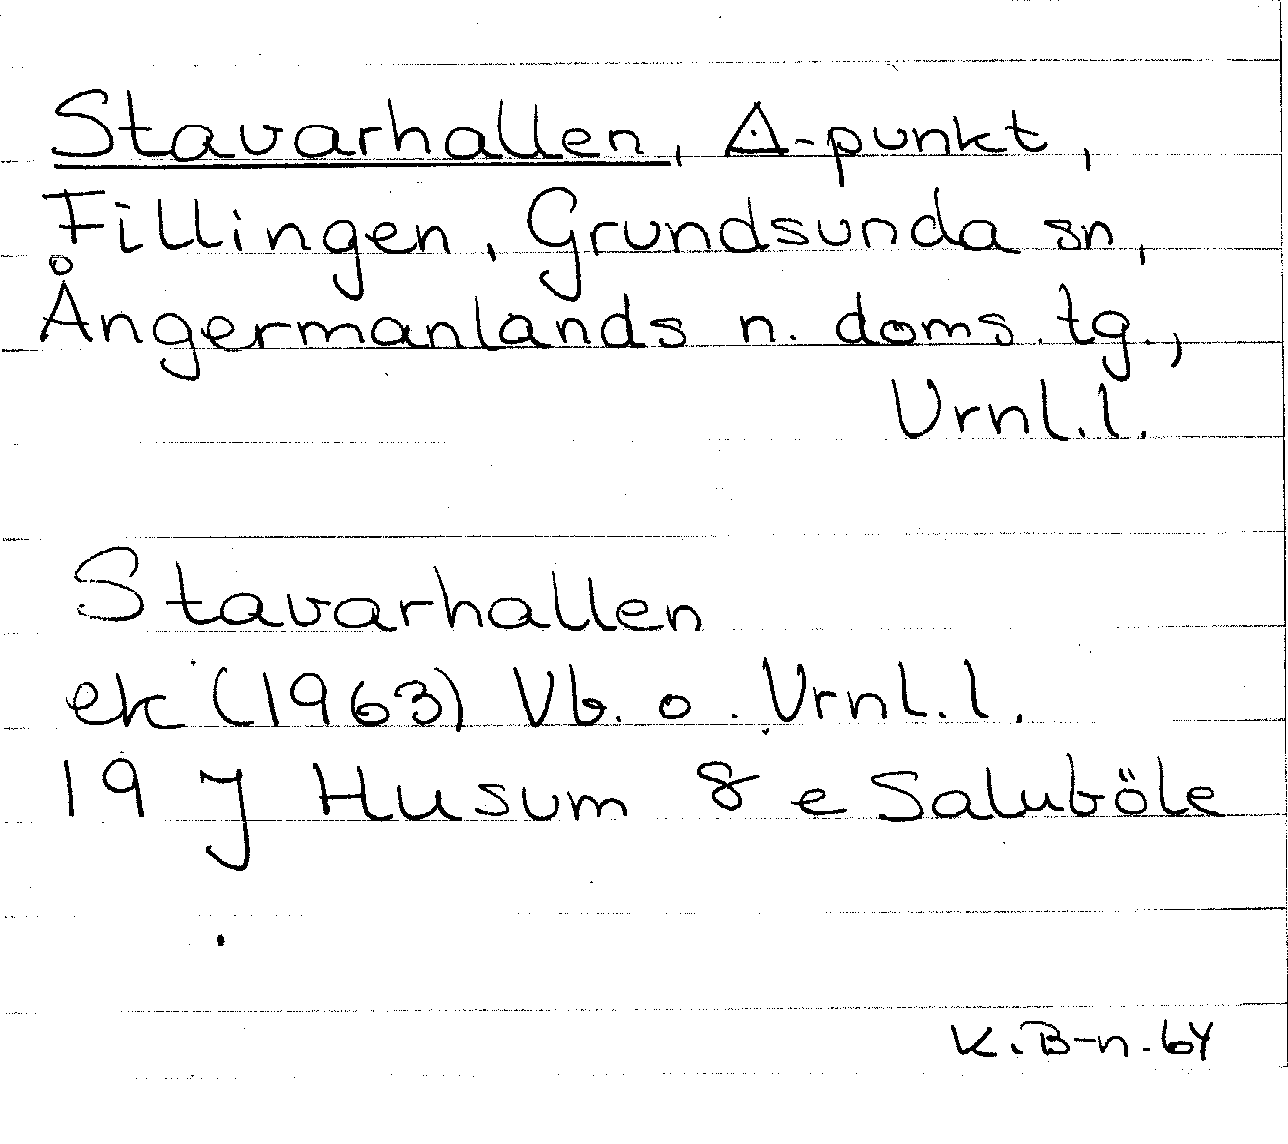 Stavarhallen, ◬-punkt,
Fillingen, Grundsunda sn,
Ångermanlands n. doms. tg.,
Vrnl.l.
Stavarhallen
ek (1963) Vb. o. Vrnl.l.
19 J Husum 8 e Saluböle
K.B-n. 64